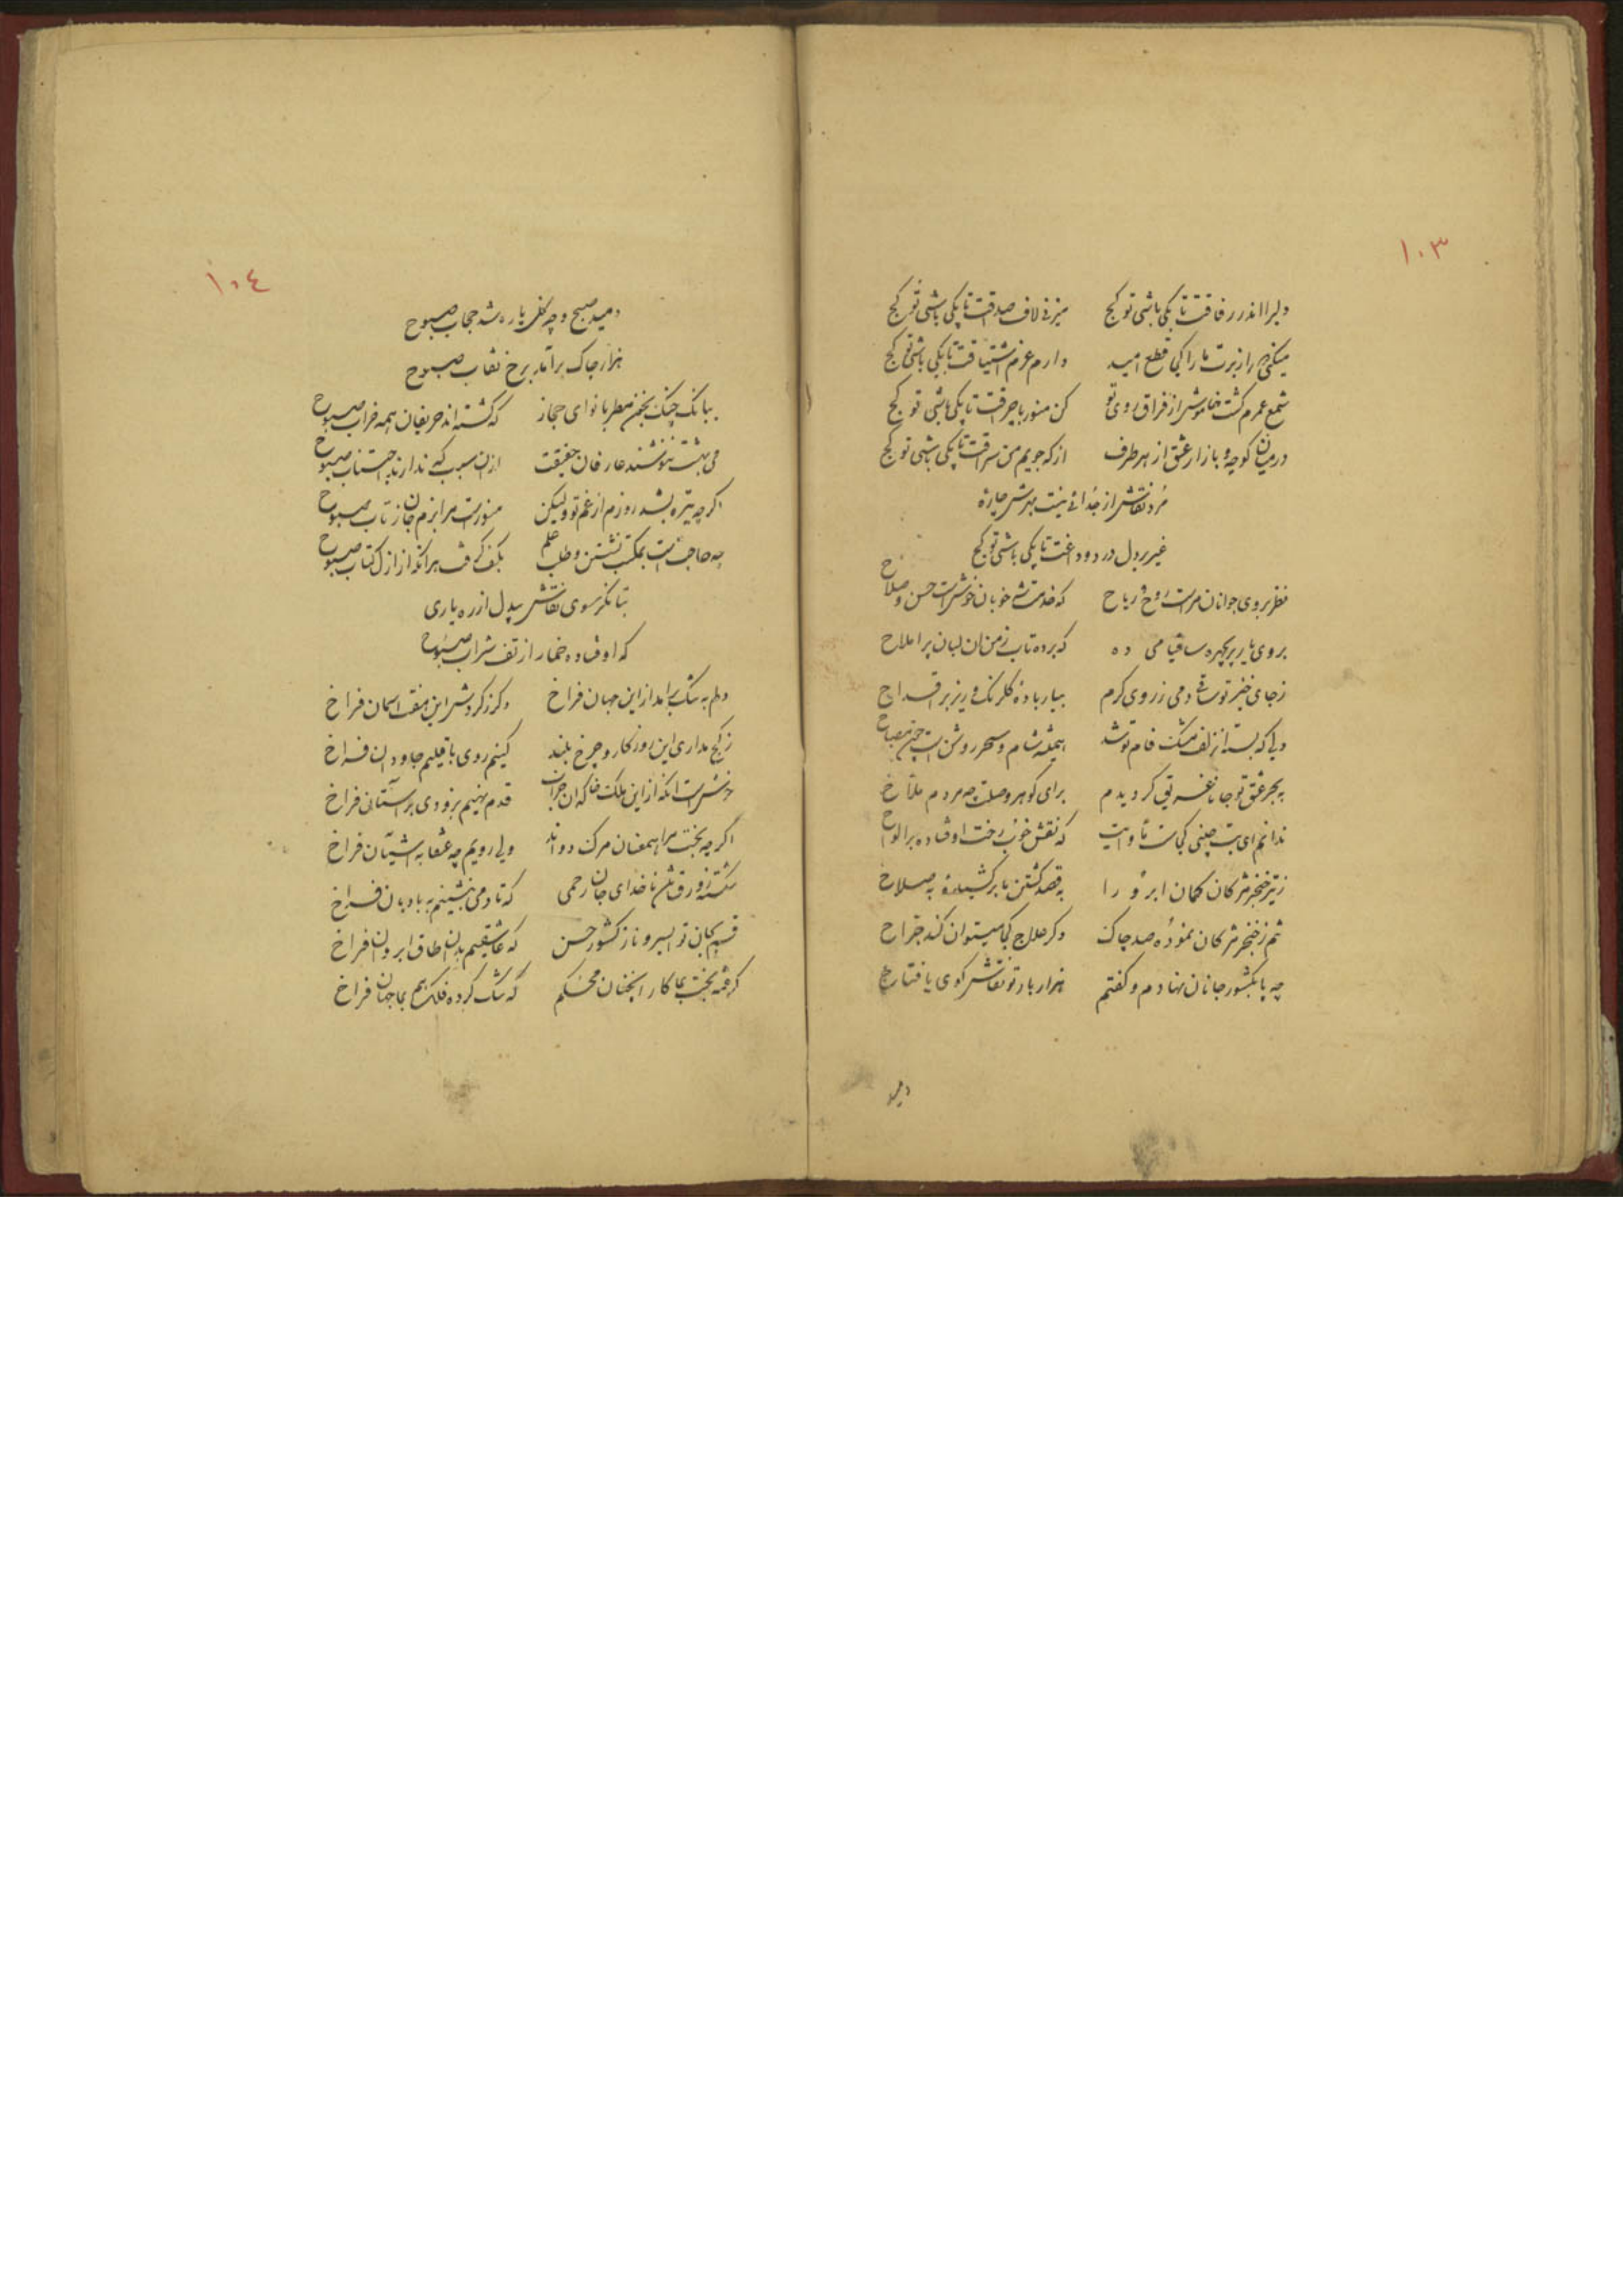 ۱۰۳
دلبرا اندر رفاقت تا بکی باشی تو کج میزنی لاف صداقت تا بکی باشی تو کج
میکنی از برت ما را کی قطع امید دارم عزم اشتیاقت تا بکی باشی تو کج
شمع عمرم کشت خاموش از فراق روی تو کن منور با چراقت تا بکی باشی تو کج
درمیان کوچه و بازار عشق از هر طرف از که جویم من سراقت تا بکی باشی تو کج
مرد نقاش از جدائی نیست بهرش چاره
غیر بر دل درد و داغت تا بکی باشی تو کج
نظر بروی جوانان مراست روح و ریاح که خوبان خوشتراست حسن و صلاح
بروی یار پریچهره ساقیا می ده که برده تاب ز من ان لبان پر املاح
زجای خیز تو ساقی دمی ز روی کرم بیار باده کلرنک و ریز بر اقداح
دلی که بسته از زلف مشک فام تو شد همیشه شام و سحر روشن است مصباح
به بحر عشق تو جانا غریق کردیدم برای کوهر وصلت چه مردم ملاح
ندانم ای بت چینی کجاست که نقش خوب رخت اوفتاده بر الواح
ز تیر خنجر مژکان کمان ابرو را به قصد کشتن ما برکشیده به صلاح
تنم ز خنجر مژکان نموده صد چاک دکر علاج کجا میتوان کند جراح
چه پا بکشور جانان نهادم و کفتم هزار بار تو نقاش کوی یا فتاح
دمید
۱۰٤
دمید صبح و چه کل پاره شد حجاب صبوح
هزار چاک برآمد برخ نقاب صبوح
ببانک چنک بخوان مطربا نوای حجاز که کشته اند حریفان همه خراب صبوح
می بهشت ننوشند عارفان حقیقت ازان سبب که ندارند اجتناب صبوح
اکرچه تیره بشد روزم از غم تو ولیکن منور است مرا بزم جان ز تاب صبوح
چه حاجت است بمکتب نشستن و طلب علم بکف کرفت هرانکه از ازل کتاب صبوح
بتا نکر سوی نقاش بیدل از ره یاری
که اوفتاده خمار از تف شراب صبوح
دلم به تنک برامد از این جهان فراخ دکر ز کردش این هفت اسمان فراخ
ز کج مداری این روزکار و چرخ بلند کنیم روی باقلیم جاودان فراخ
خوشتر است انکه از این ملک خاکدان خراب قدم نهیم بزودی بر استان فراخ
اکرچه بخت مرا همعنان مرک دواند ولی رویم چه عنقا به اشیان فراخ
شکسته زورق تن ناخدای جان رحمی که تا دمی بنشینم به بادبان فراخ
قسم بجان تو ای سرو ناز کشور حسن که عاشقیم بدان طاق ابروان فراخ
کرفته بخت بما کار انچنان محکم که تنک کرده فلک هم بما جهان فراخ